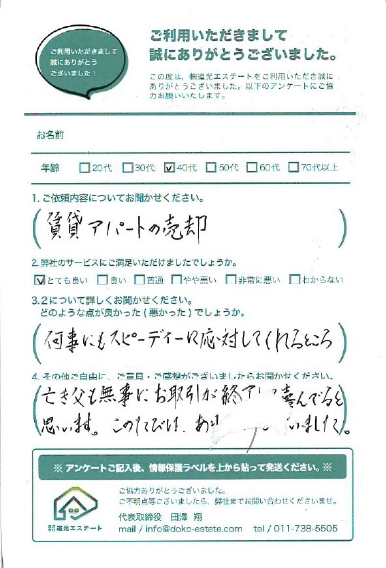 ご利用いただきまして
誠にありがとう
ございました！
ご利用いただきまして
誠にありがとうございました。
この度は、㈱道光エステートをご利用いただき誠に
ありがとうございました。以下のアンケートにご協
力お願いいたします。
お名前
年齢 □20代 □30代 ☑40代 □50代 □60代 □70代以上
1.ご依頼内容についてお聞かせください。
賃貸アパートの売却
2.弊社のサービスにご満足いただけましたでしょうか。
☑とても良い □良い □普通 □やや悪い □非常に悪い □わからない
3.2について詳しくお聞かせください。
どのような点が良かった(悪かった)でしょうか。
何事にもスピーディーに応対してくれるところ
4.その他ご自由に、ご意見・ご感想がございましたらお聞かせください。
亡き父も無事にお取引が終了し喜んでると
思います。このたびは、あり ございました。
※アンケートご記入後、情報保護ラベルを上から貼って発送ください。※
ご協力ありがとうございました。
ご不明点等ございましたら、弊社までお問い合わせくださいませ。
代表取締役 田澤 翔
株式会社道光エステート mail / info@doko-estate.com tel / 011-738-5505